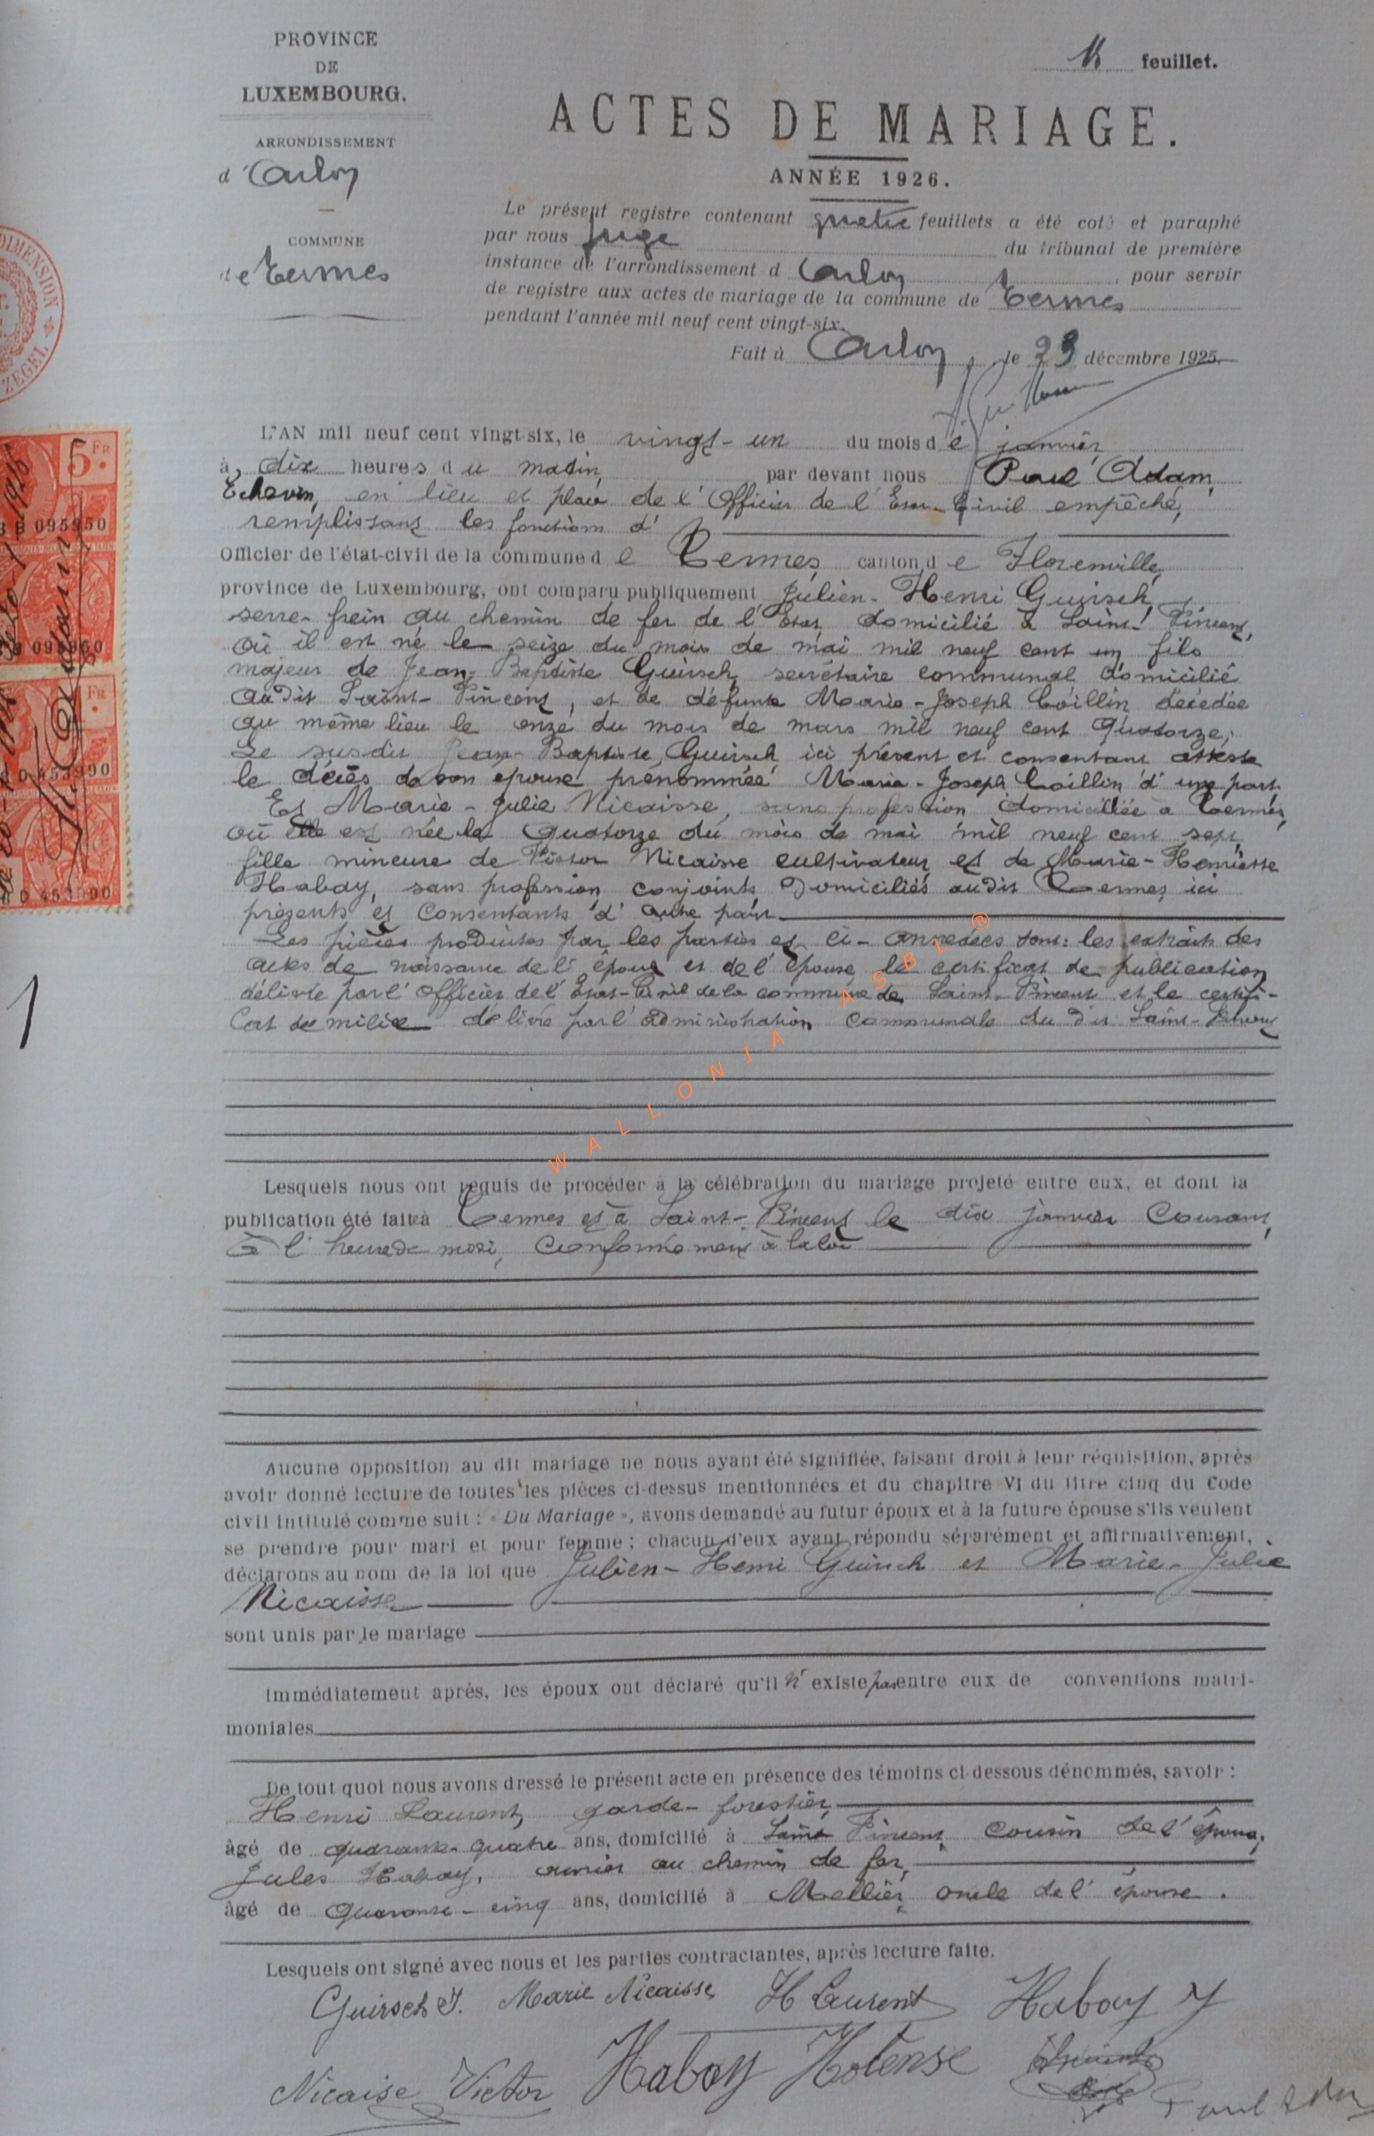 PROVINCE
DE
LUXEMBOURG.
ARRONDISSEMENT
d'Arlon
COMMUNE
de Termes
feuillet.
ACTES DE MARIAGE.
ANNÉE 1926.
Le présent registre contenant quatre feuillets a été coté et paraphé
par nous Juge du tribunal de première
instance de l'arrondissement d Arlon, pour servir
de registre aux actes de mariage de la commune de Termes
pendant l'année mil neuf cent vingt-six.
Fait à Arlon, le 23 décembre 1925.
DIMENSION
ZEGEL
5 FR
B 095950
1 FR
D 453990
D 453990
1
L'AN mil neuf cent vingt-six, le vingt-un du mois de janvier
à dix heures du matin par devant nous Paul Adam,
Echevin, en lieu et place de l'Officier de l'Etat-Civil empêché,
remplissant les fonctions d'
Officier de l'état-civil de la commune de Termes, canton de Florenville,
province de Luxembourg, ont comparu publiquement Julien-Henri Guirsch,
serre-frein au chemin de fer de l'Etat, domicilié à Saint-Vincent,
où il est né le seize du mois de mai mil neuf cent un fils
majeur de Jean-Baptiste Guirsch, secrétaire communal domicilié
audit Saint-Vincent, et de défunte Marie-Joseph Coillin décédée
au même lieu le onze du mois de mars mil neuf cent quatorze;
Le susdit Jean-Baptiste Guirsch ici présent et consentant atteste
le décès de son épouse prénommée Marie-Joseph Coillin d'une part.
Et Marie-Julie Nicaisse, sans profession domiciliée à Termes,
où elle est née le quatorze du mois de mai mil neuf cent sept,
fille mineure de Victor Nicaisse cultivateur et de Marie-Henriette
Habay, sans profession, conjoints domiciliés audit Termes, ici
présents et consentants d'autre part.
Les pièces produites par les parties et ci-annexées sont: les extraits des
actes de naissance de l'époux et de l'épouse le certificat de publication
délivré par l'officier de l'Etat-Civil de la commune de Saint-Vincent et le certifi-
cat de milice délivré par l'administration communale du dit Saint-Vincent
WALLONIA ASBL ®
Lesquels nous ont requis de procéder à la célébration du mariage projeté entre eux, et dont la
publication été faite à Termes et à Saint-Vincent le dix janvier courant,
à l'heure de midi, conformément à la loi
Aucune opposition au dit mariage ne nous ayant été signifiée, faisant droit à leur réquisition, après
avoir donné lecture de toutes les pièces ci-dessus mentionnées et du chapitre VI du titre cinq du Code
civil intitulé comme suit : « Du Mariage », avons demandé au futur époux et à la future épouse s'ils veulent
se prendre pour mari et pour femme ; chacun d'eux ayant répondu séparément et affirmativement,
déclarons au nom de la loi que Julien-Henri Guirsch et Marie-Julie
Nicaisse
sont unis par le mariage
Immédiatement après, les époux ont déclaré qu'il n'existe pas entre eux de conventions matri-
moniales
De tout quoi nous avons dressé le présent acte en présence des témoins ci-dessous dénommés, savoir :
Henri Laurent, garde-forestier
âgé de quarante-quatre ans, domicilié à Saint Vincent, cousin de l'époux,
Jules Habay, ouvrier au chemin de fer,
âgé de quarante-cinq ans, domicilié à Mellier, oncle de l'épouse.
Lesquels ont signé avec nous et les parties contractantes, après lecture faite.
Guirsch J. Marie Nicaisse H Laurent Habay J
Nicaise Victor Habay Hotense Paul Adam